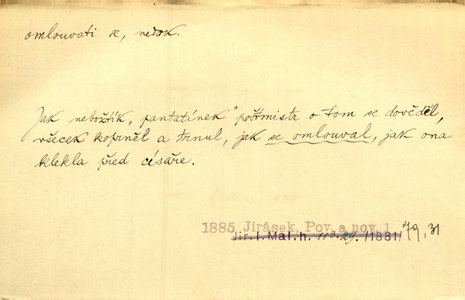 omlouvati se, nedok.
Jak nebožtík „pantatínek" poštmistr o tom se dověděl,
všecek koprněl a trnul, jak se omlouval, jak ona
klekla před císaře.
1885 Jirásek, Pov. a nov. 1 79, 31
Jir. I. Mal. h. 113.29. /1881/